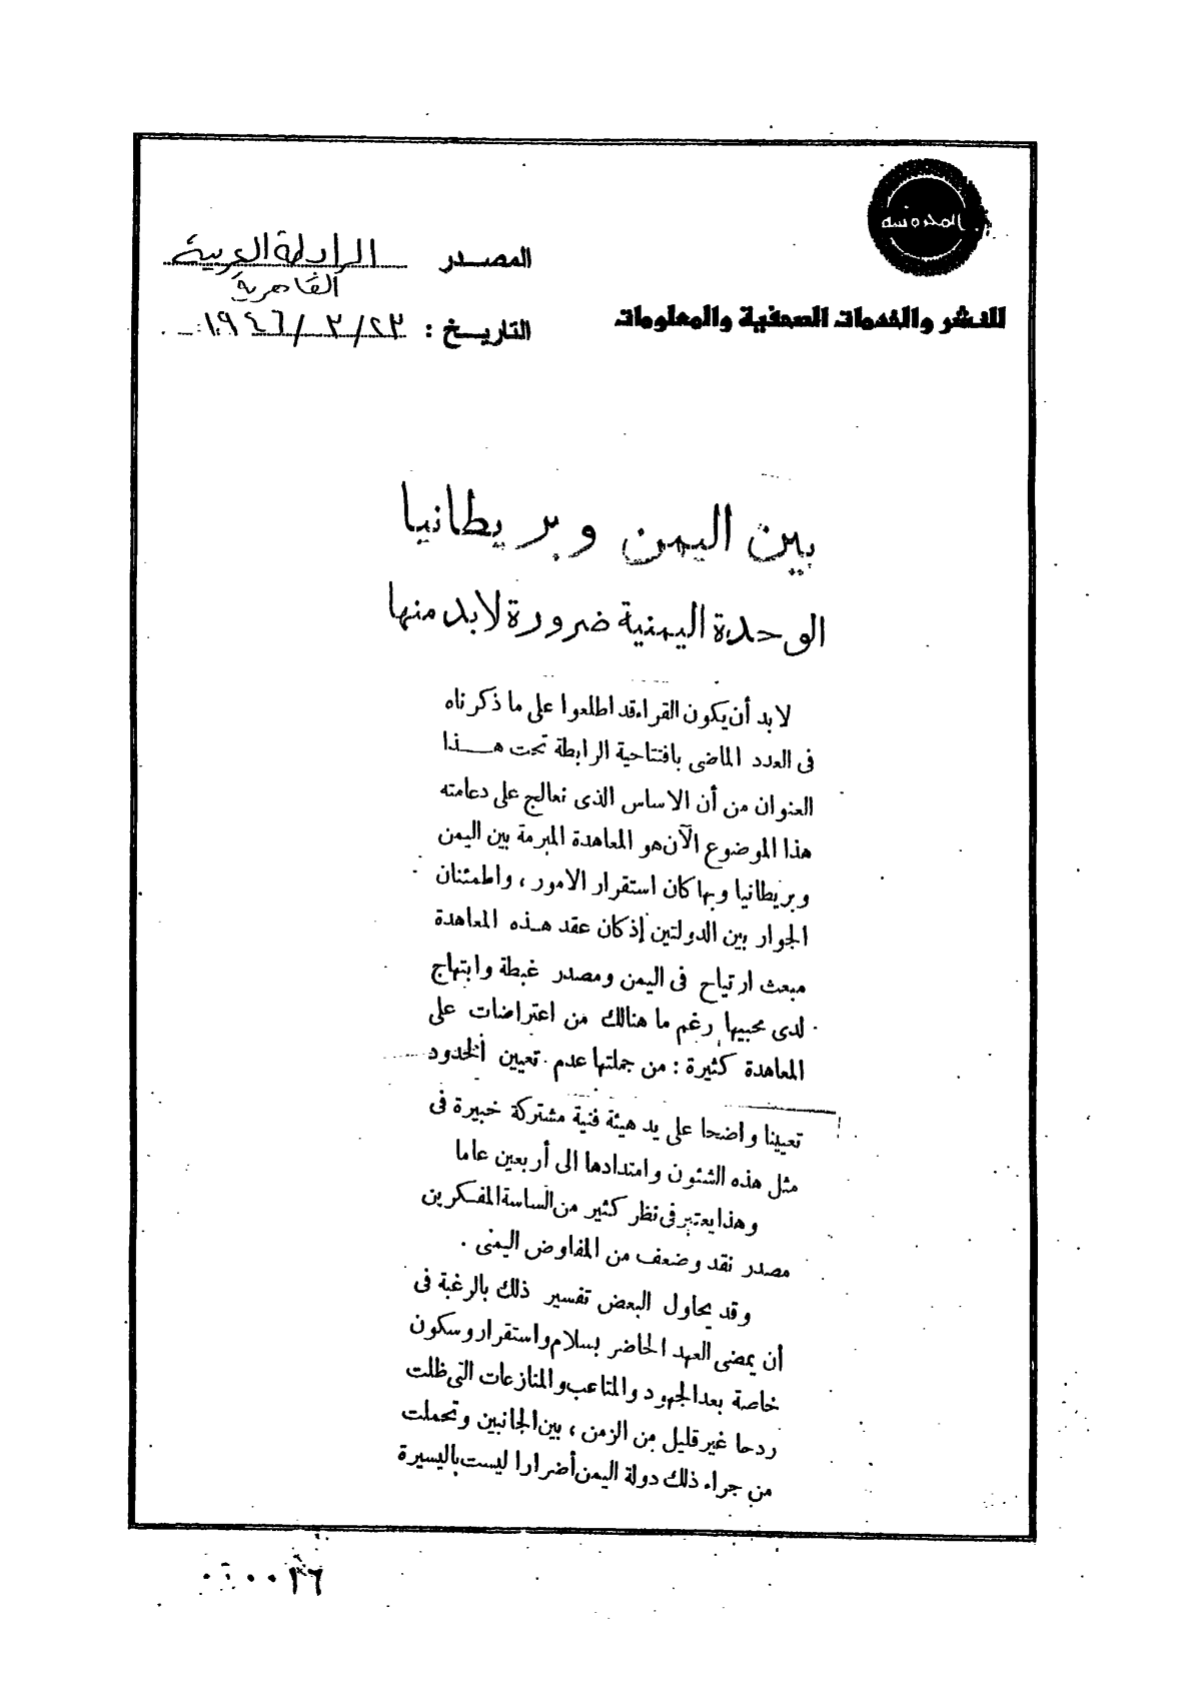 المحروسة
للنشر والخدمات الصحفية والمعلومات
المصدر الرابطة العربية
القاهرية
التاريخ : ٢٣/٣/١٩٤٦
بين اليمن وبريطانيا
الوحدة اليمنية ضرورة لابد منها
لا بد أن يكون القراء قد اطلعوا على ما ذكرناه
فى العدد الماضى بافتتاحية الرابطة تحت هـذا
العنوان من أن الاساس الذى نعالج على دعامته
هذا الموضوع الآن هو المعاهدة المبرمة بين اليمن
وبريطانيا وبها كان استقرار الامور ، واطمئنان
الجوار بين الدولتين إذ كان عقد هذه المعاهدة
مبعث ارتياح فى اليمن ومصدر غبطة وابتهاج
لدى محبيها رغم ما هنالك من اعتراضات على
المعاهدة كثيرة : من جملتها عدم تعيين الحدود
تعيينا واضحا على يد هيئة فنية مشتركة خبيرة فى
مثل هذه الشئون وامتدادها الى أربعين عاما
وهذا يعتبر فى نظر كثير من الساسة المفكرين
مصدر نقد وضعف من المفاوض اليمنى .
وقد يحاول البعض تفسير ذلك بالرغبة فى
أن يمضى العهد الحاضر بسلام واستقرار وسكون
خاصة بعد الجهود والمتاعب والمنازعات التى ظلت
ردحا غير قليل من الزمن ، بين الجانبين وتحملت
من جراء ذلك دولة اليمن أضرارا ليست باليسيرة